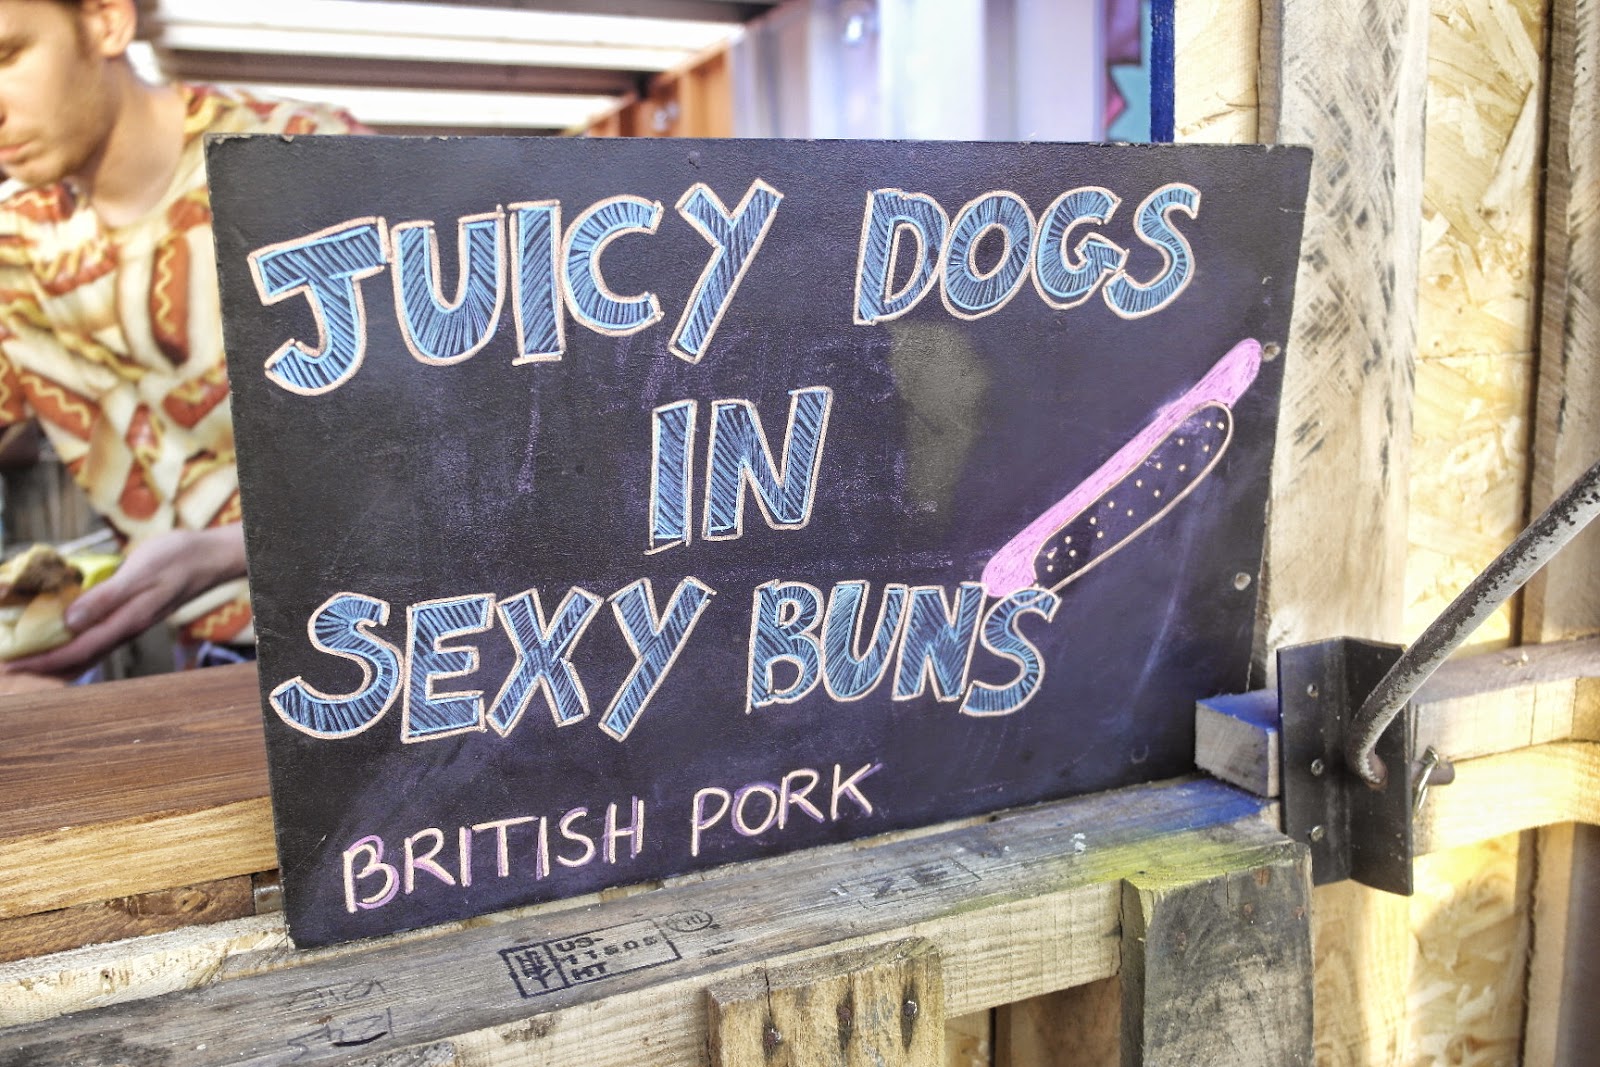 JUICY DOGS
IN
SEXY BUNS
BRITISH PORK
US-
11505
HT